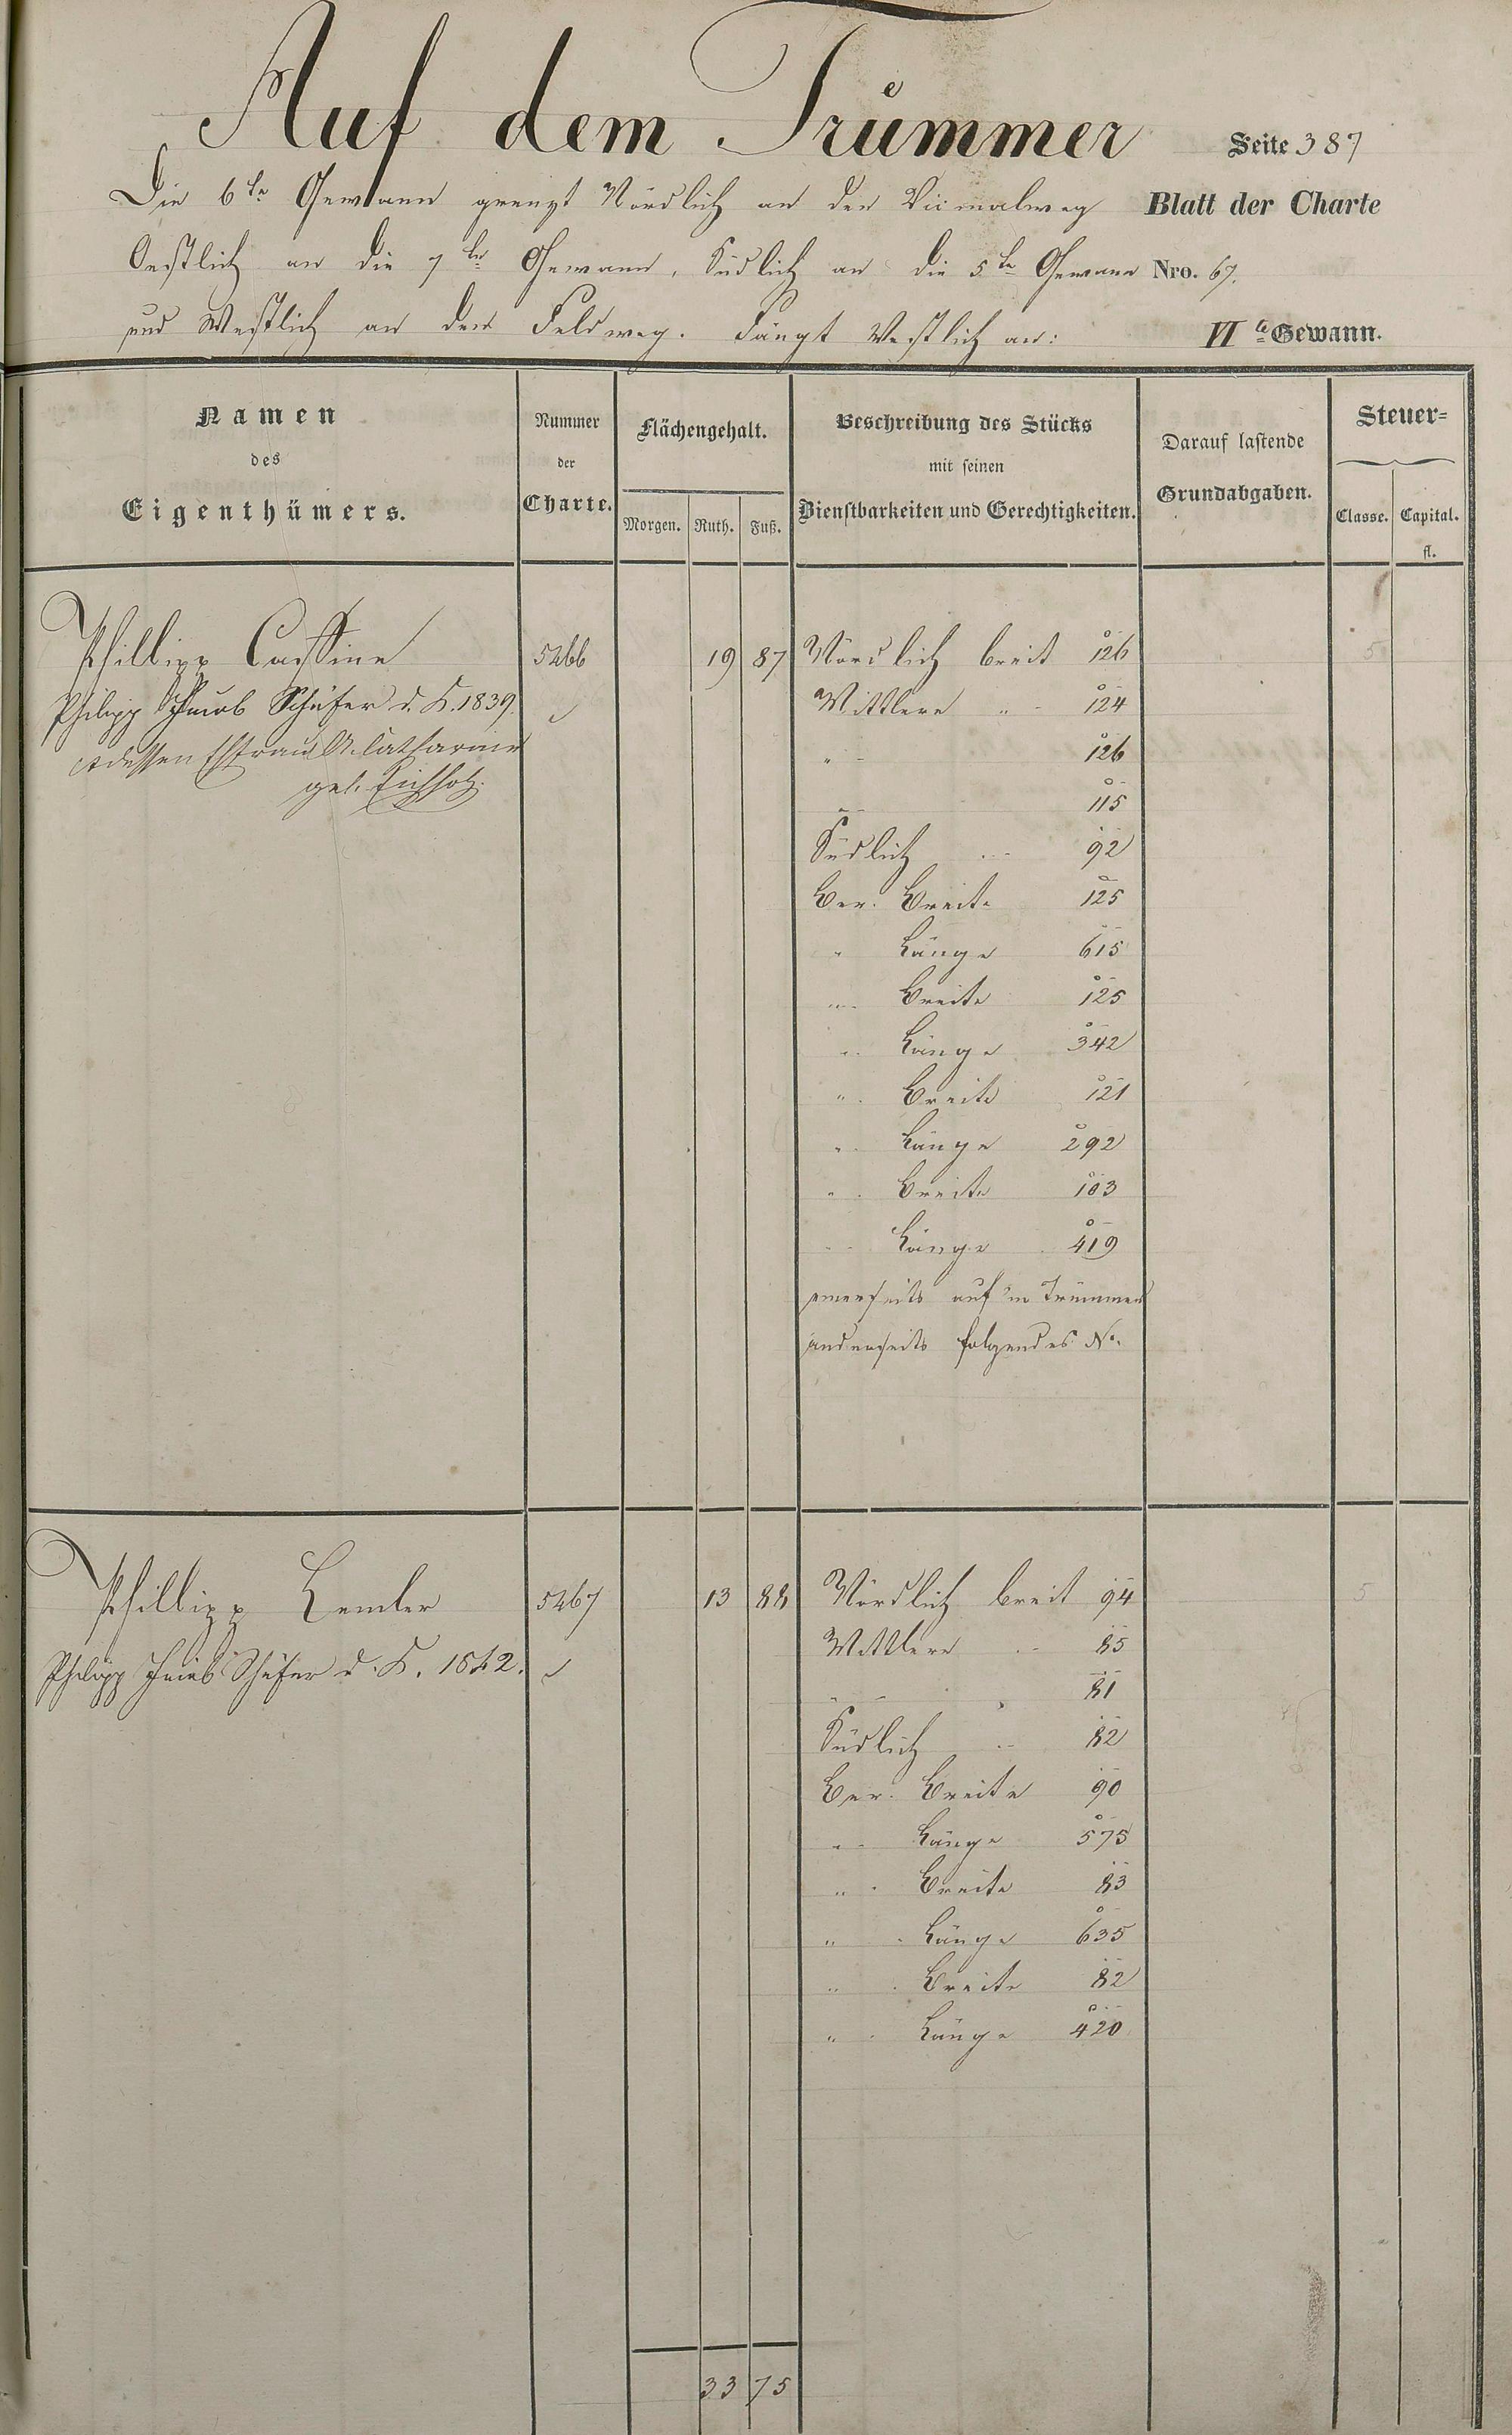 Auf dem Trümmer
Seite 387
Die 6te Gewann grenzt Nördlich an den Vicinalweg
Blatt der Charte
Oestlich an die 7te Gewann, Südlich an die 5te Gewann
Nro. 67.
und Westlich an den Feldweg. Fängt Westlich an:
VIte Gewann.
Namen
des
Eigenthümers.
Nummer
der
Charte.
Flächengehalt.
Morgen. Ruth. Fuß.
Beschreibung des Stücks
mit seinen
Dienstbarkeiten und Gerechtigkeiten.
Darauf lastende
Grundabgaben.
Steuer=
Classe. Capital.
fl.
Phillipp Cassine 5266 19 87 Nördlich breit 126 5
Philipp Jacob Schäfer d. K. 1839. Mittlere " 124
dessen Ehfrau A. Catharine " 126
geb. Eichholz. " 115
Südlich " 92
Ber. Breite 125
" Länge 615
" Breite 125
" Länge 342
" Breite 121
" Länge 292
" Breite 103
" Länge 419
einerseits auf'm Trümmer
anderseits folgendes No.
Phillipp Lemler 5267 13 88 Nördlich breit 94 5
Philipp Jacob Schäfer d. K. 1842. Mittlere " 85
" 81
Südlich " 82
Ber. Breite 90
" Länge 575
" Breite 83
" Länge 635
" Breite 82
" Länge 420
33 75